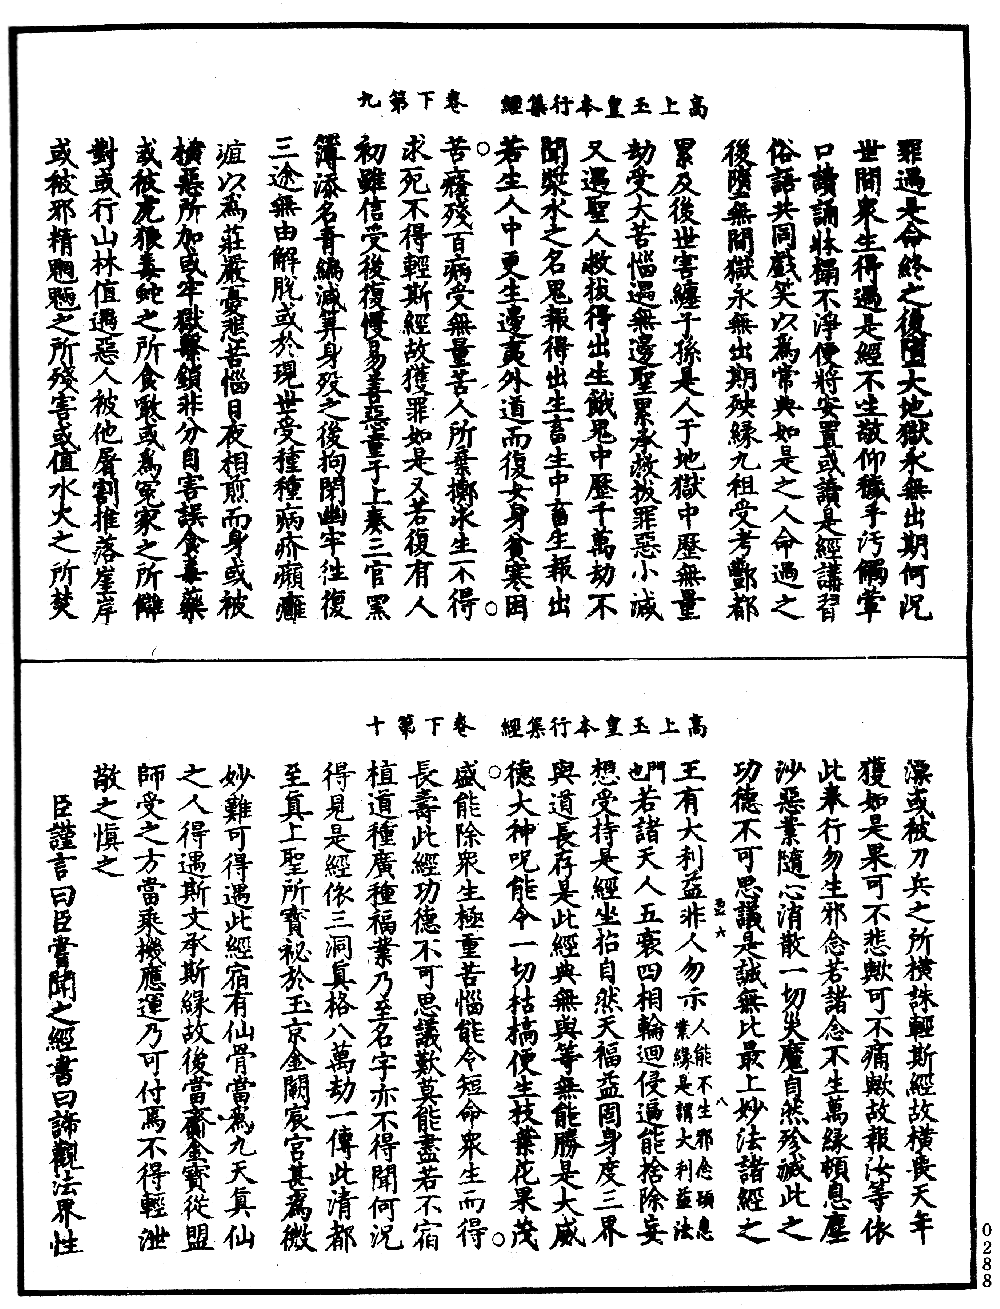 高上玉皇本行集經　卷下第九
罪過是命終之後墮大地獄永無出期何況
世間衆生得遇是經不生敬仰穢手汚觸葷
口讀誦牀榻不淨便將安置或讀是經講習
俗語共同戲笑以爲常典如是之人命過之
後墮無間獄永無出期殃縁九祖受考酆都
累及後世害纏子孫是人于地獄中歷無量
劫受大苦惱遇無邊聖累承救拔罪惡小減
又遇聖人救拔得出生餓鬼中歷千萬劫不
聞漿水之名鬼報得出生畜生中畜生報出
若生人中更生邊夷外道而復女身貧寒困
苦癃殘百病受無量苦人所棄擲求生不得
求死不得輕斯經故獲罪如是又若復有人
初雖信受後復慢易善惡童子上奏三官黑
簿添名青編減筭身殁之後拘閉幽牢徃復
三途無由解脫或於現世受種種病疥癩癰
疽以爲莊嚴憂悲苦惱日夜相煎而身或被
橫惡所加或牢獄繫鎖非分自害誤食毒藥
或被虎狼毒蛇之所食噉或爲冤家之所讎
對或行山林值遇惡人被他屠割推落崖岸
或被邪精魍魎之所殘害或值水火之所焚
高上玉皇本行集經　卷下第十
漂或被刀兵之所橫誅輕斯經故橫喪天年
獲如是果可不悲歟可不痛歟故報汝等依
此奉行勿生邪念若諸念不生萬縁頓息塵
沙惡業隨心消散一切災魔自然殄滅此之
功德不可思議是誠無比最上妙法諸經之
王有大利益非人勿示人能不生邪念頓息業縁是謂大利益法
門也若諸天人五衰四相輪迴侵逼能捨除妄
想受持是經坐招自然天福益固身度三界
與道長存是此經典無與等無能勝是大威
德大神呪能令一切枯槁便生枝葉花果茂
盛能除衆生極重苦惱能令短命衆生而得
長壽此經功德不可思議歎莫能盡若不宿
植道種廣種福業乃至名字亦不得聞何況
得見是經依三洞眞格八萬劫一傳此清都
至眞上聖所寳祕於玉京金闕宸宮甚爲微
妙難可得遇此經宿有仙骨當爲九天眞仙
之人得遇斯文承斯緣故後當齎金寳從盟
師受之方當乘機應運乃可付焉不得輕泄
敬之愼之
臣謹言曰臣嘗聞之經書曰諦觀法界性
0288